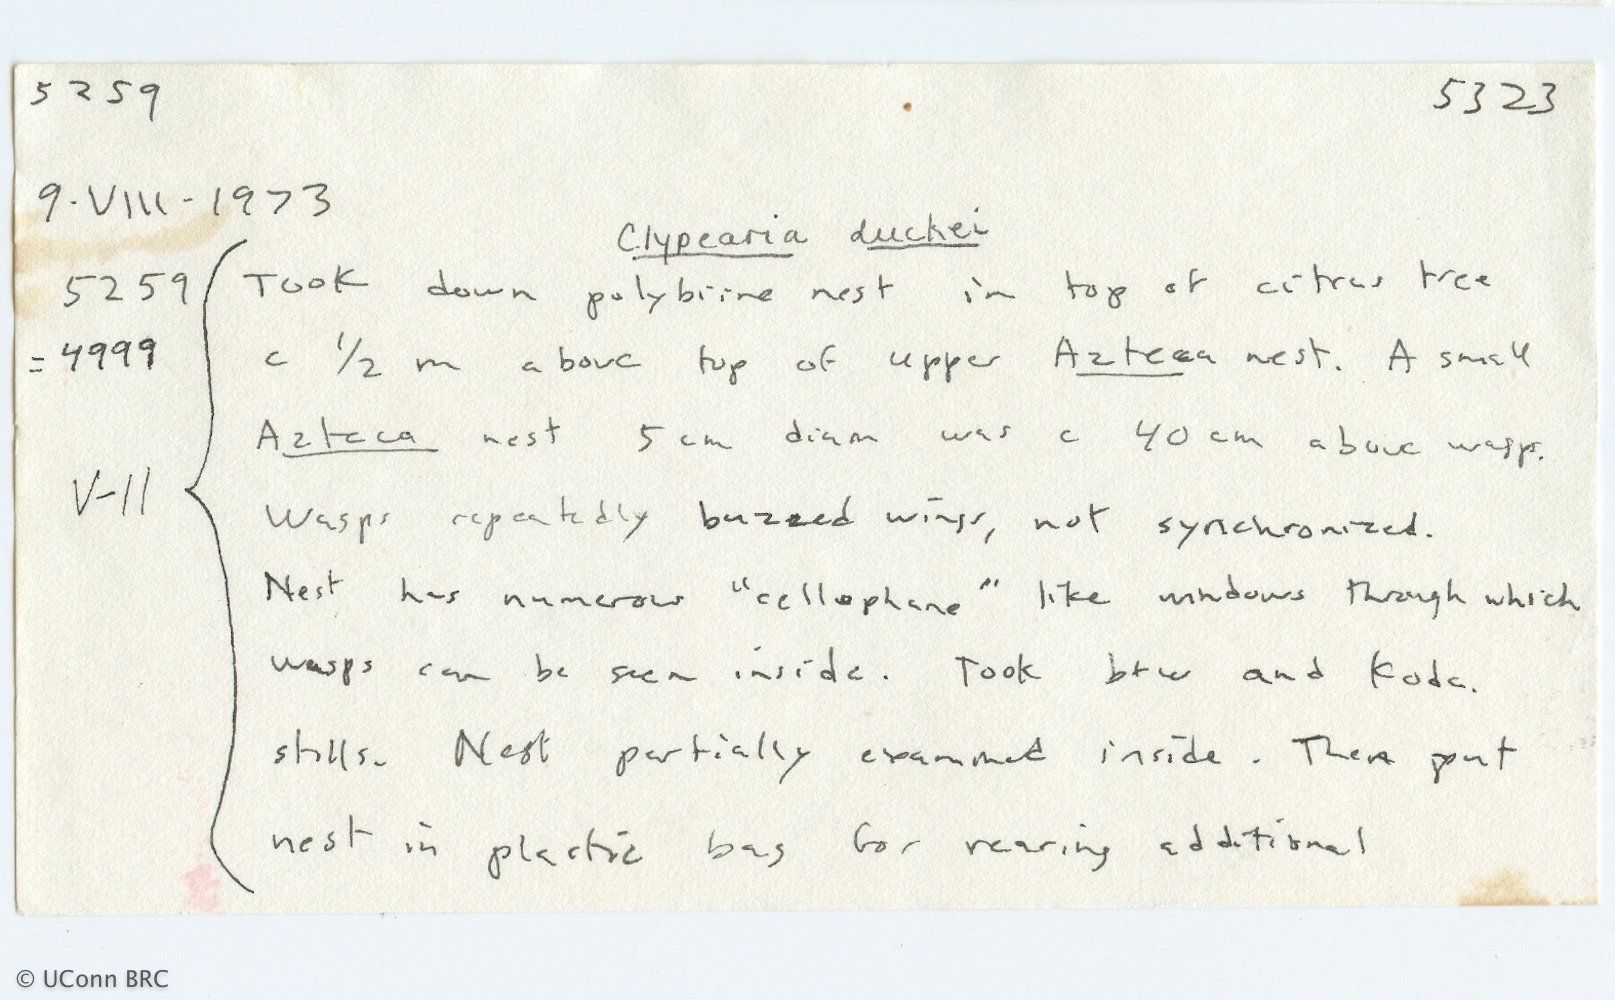 5259 5323
9-VIII-1973
Clypearia duckei
5259 Took down polybiine nest in top of citrus tree
= 4999 c 1/2 m above top of upper Azteca nest. A small
Azteca nest 5 cm diam was c 40 cm above wasps.
V-11
Wasps repeatedly buzzed wings, not synchronized.
Nest has numerous "cellophane" like windows through which
wasps can be seen inside. Took b+w and Koda.
stills. Nest partially examined inside. Then put
nest in plastic bag for rearing additional
© UConn BRC